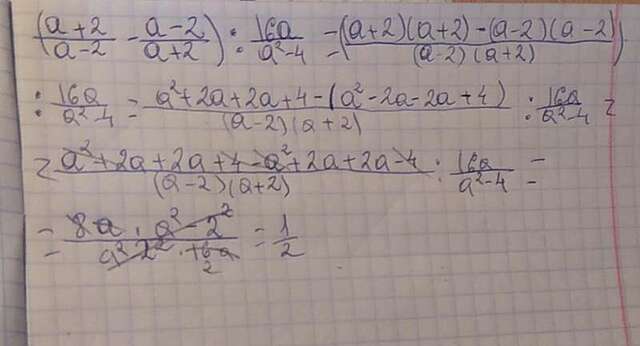 (a+2/a-2 - a-2/a+2) : 16a/a²-4 = ((a+2)(a+2)-(a-2)(a-2)/(a-2)(a+2))
: 16a/a²-4 = a²+2a+2a+4-(a²-2a-2a+4)/(a-2)(a+2) : 16a/a²-4 =
= a²+2a+2a+4-a²+2a+2a-4/(a-2)(a+2) : 16a/a²-4 =
= 8a · a²-2²/a²-2² · 16a 2 = 1/2